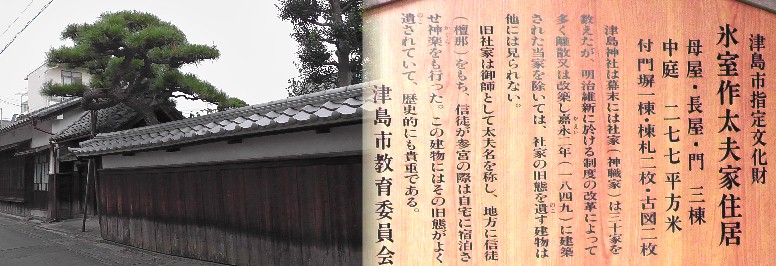 津島市指定文化財
氷室作太夫家住居
母屋・長屋・門 三棟
中庭 二七七平方米
付門塀一棟・棟札二枚・古図二枚
津島神社は幕末には社家(神職家)は三十家を
数えたが、明治維新に於ける制度の改革によって
多く離散又は改築し嘉永二年(一八四九)に建築
された当家を除いては、社家の旧態を遺す建物は
他には見られない。
旧社家は御師として太夫名を称し、地方に信徒
(檀那)をもち、信徒が参宮の際は自宅に宿泊さ
せ神楽をも行った。この建物にはその旧態がよく
遺されていて、歴史的にも貴重である。
津島市教育委員会